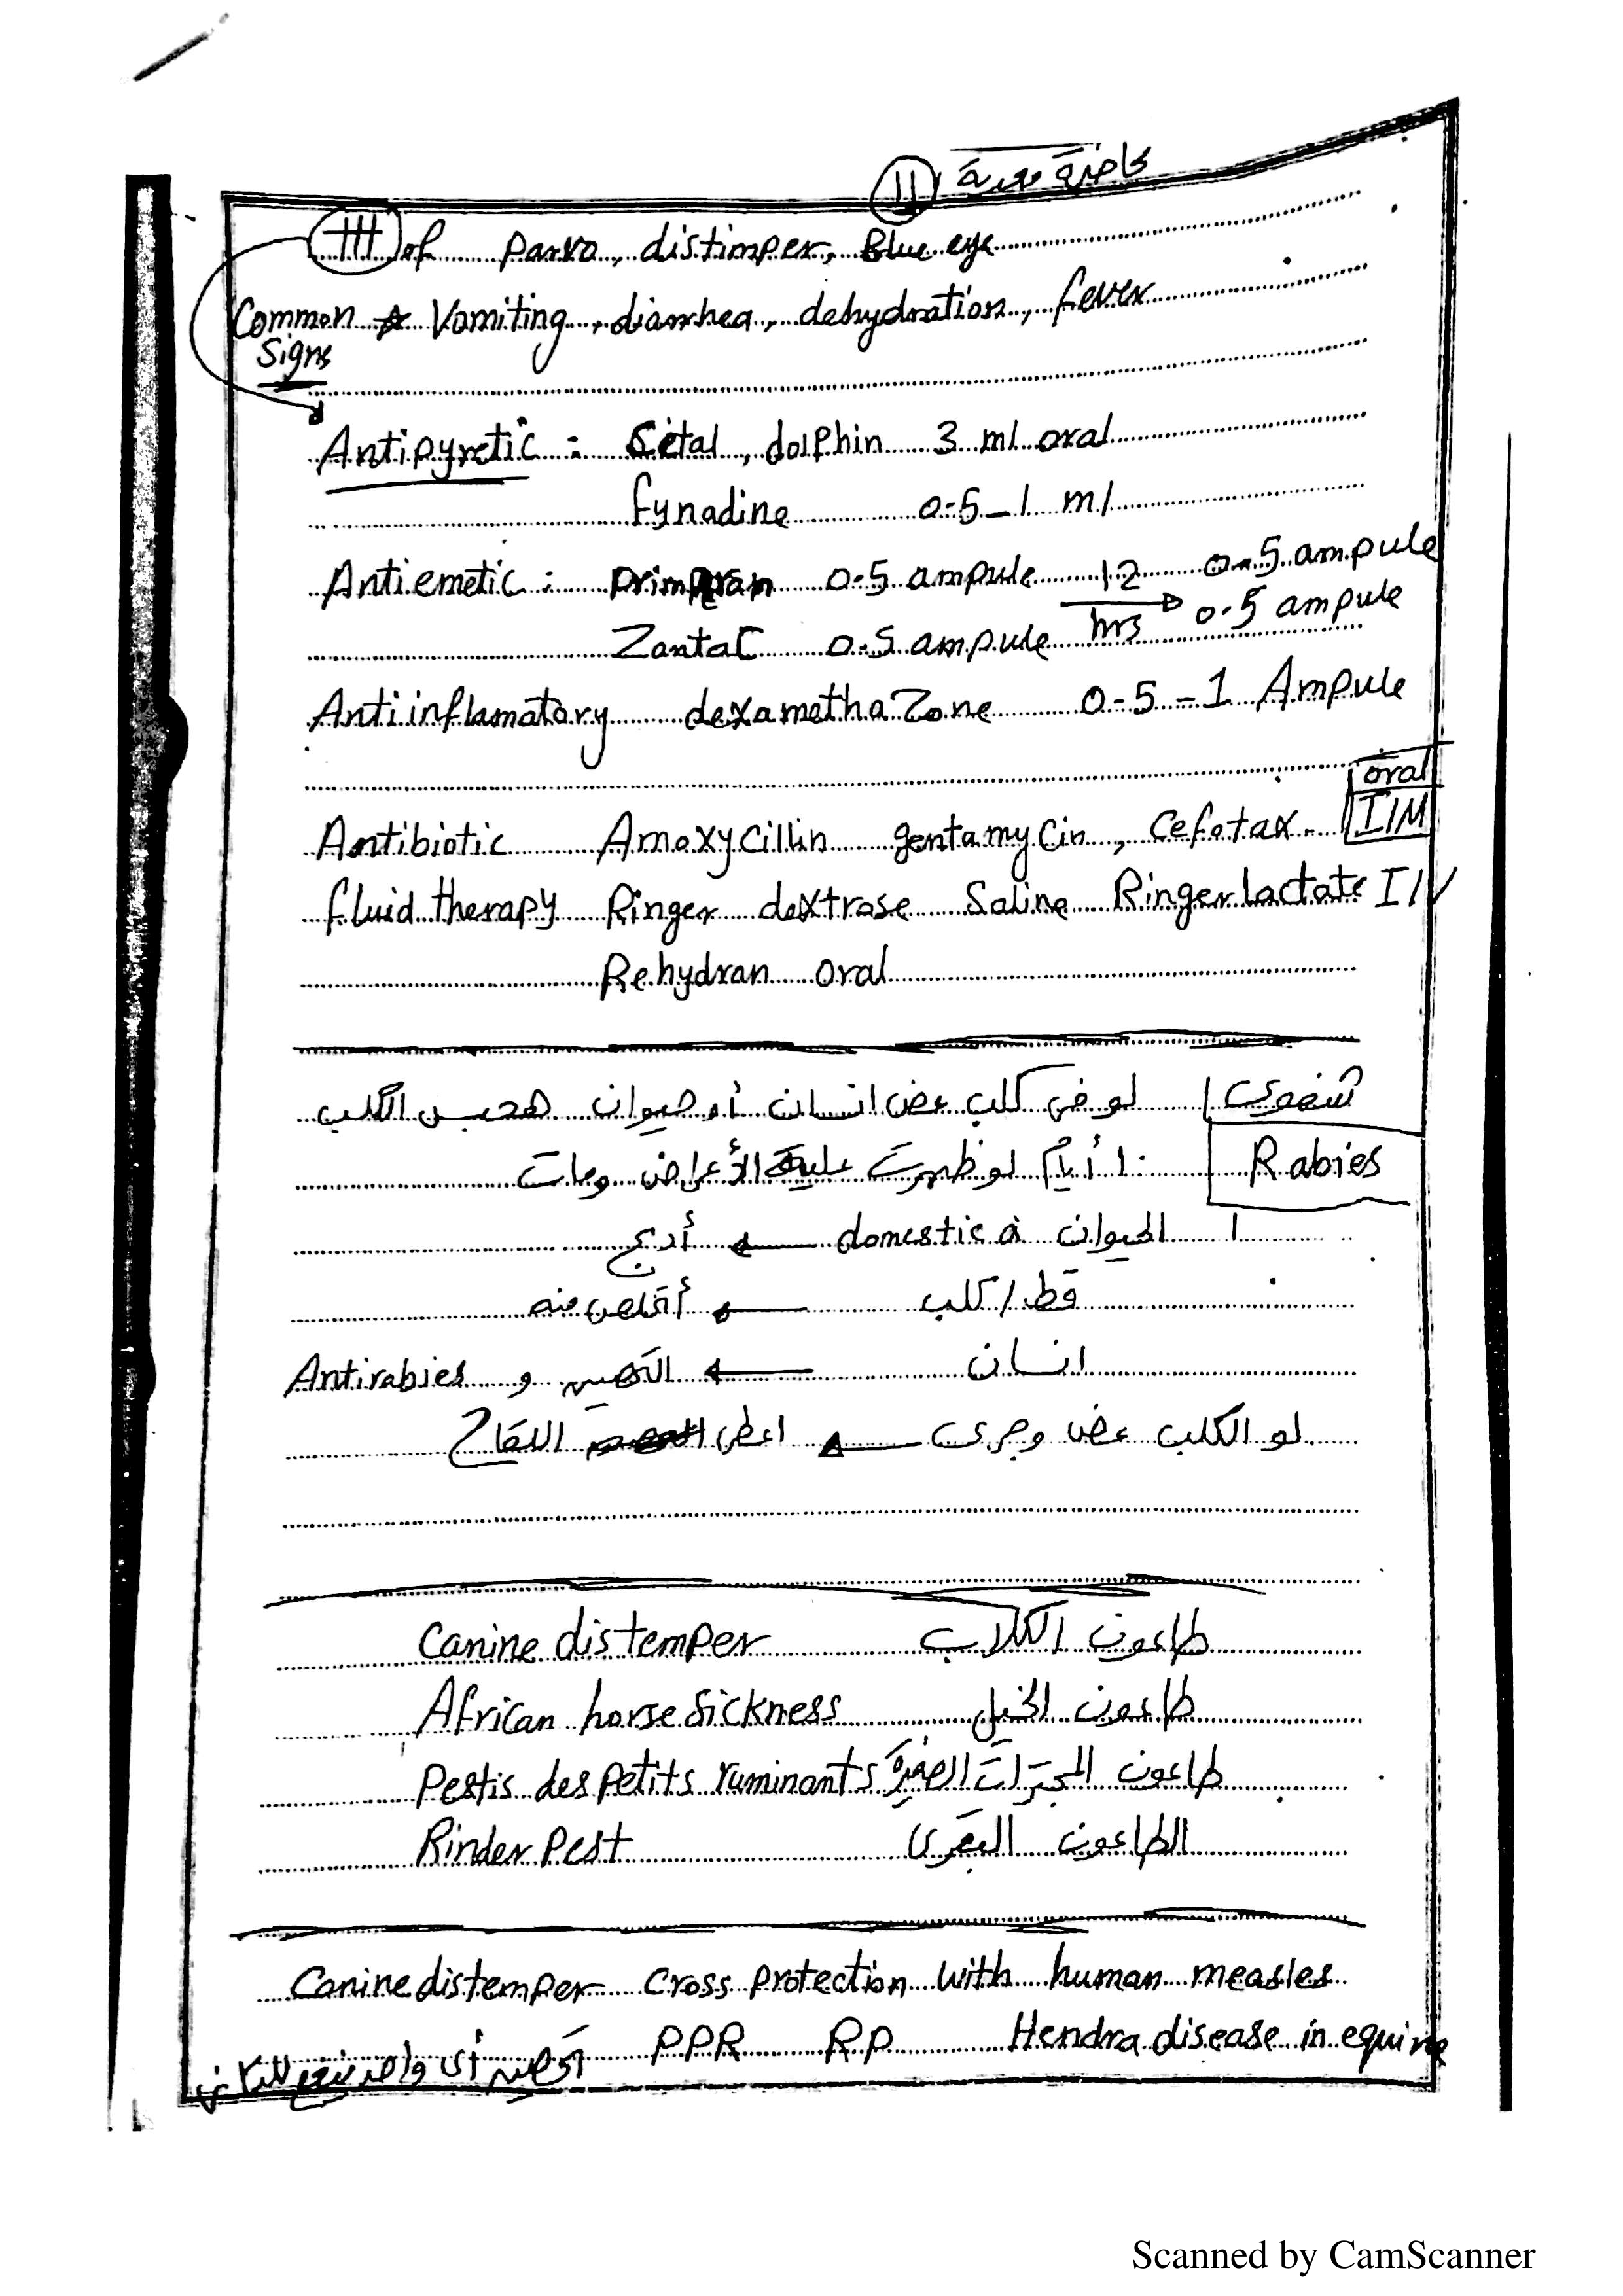 11 محاضرة معدية
ttt of parvo, distimper, Blue eye
Common Signs * Vomiting, diarrhea, dehydration, fever
Antipyretic : Cetal, dolphin 3 ml oral
fynadine 0.5 - 1 ml
Antiemetic : primperan 0.5 ampule 12 hrs → 0.5 ampule
Zantac 0.5 ampule 0.5 ampule
Antiinflamatory dexamethazone 0.5 - 1 Ampule
Antibiotic Amoxycillin gentamycin, Cefotax. oral I/M
fluid therapy Ringer dextrose Saline Ringer lactate I/V
Rehydran oral
شفوى لو فى كلب عض انسان أو حيوان هحبس الكلب
Rabies ١٠ أيام لو ظهرت عليه الأعراض ومات
الحيوان domestic ← أدبح
قط / كلب ← أتخلص منه
انسان ← التحصين و Antirabies
لو الكلب عض وجرى ← اعطى اللقاح
Canine distemper طاعون الكلاب
African horse sickness طاعون الخيل
Pestis des petits ruminants طاعون المجترات الصغيرة
Rinder pest الطاعون البقرى
Canine distemper cross protection with human measles
PPR RP Hendra disease in equine
تحصين أى واحد ينفع للتانى